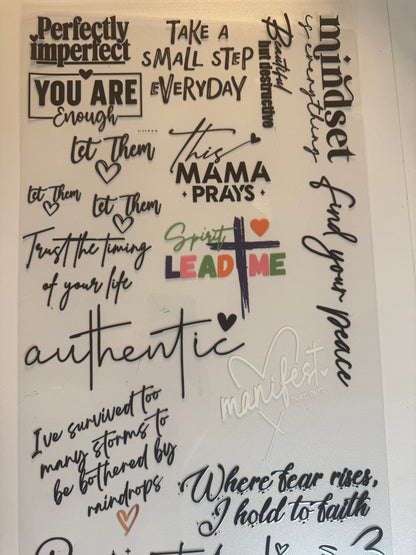 Perfectly
imperfect
TAKE A
SMALL STEP
EVERYDAY
Beautiful
but destructive
mindset
is everything
YOU ARE
Enough
Let Them
This
MAMA
PRAYS
Let Them
Let Them
find your peace
Trust the timing
of your life
Spirit
LEAD ME
authentic
manifest
THAT SHIT
I've survived too
many storms to
be bothered by
raindrops
Where fear rises,
I hold to faith